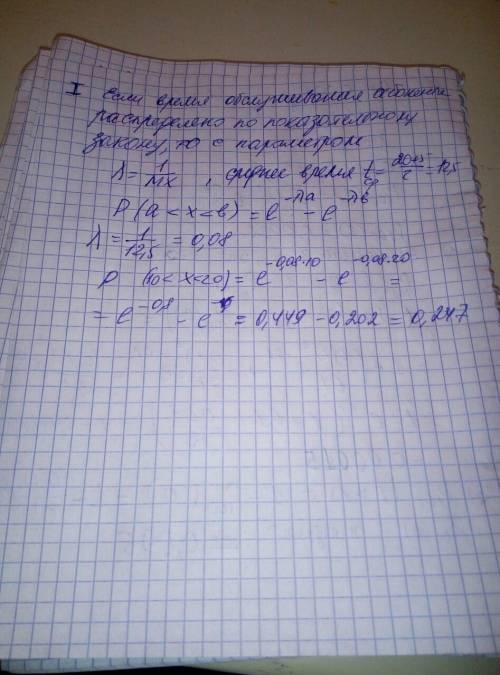 I Если время обслуживания абонента
распределено по показательному
закону, то с параметром
λ = 1/MX , среднее время t ср = 20+5/2 = 12,5
P (a < x < b) = e^-λa - e^-λb
λ = 1/12,5 = 0,08
P (10 < x < 20) = e^-0,08·10 - e^-0,08·20 =
= e^-0,8 - e = 0,449 - 0,202 = 0,247